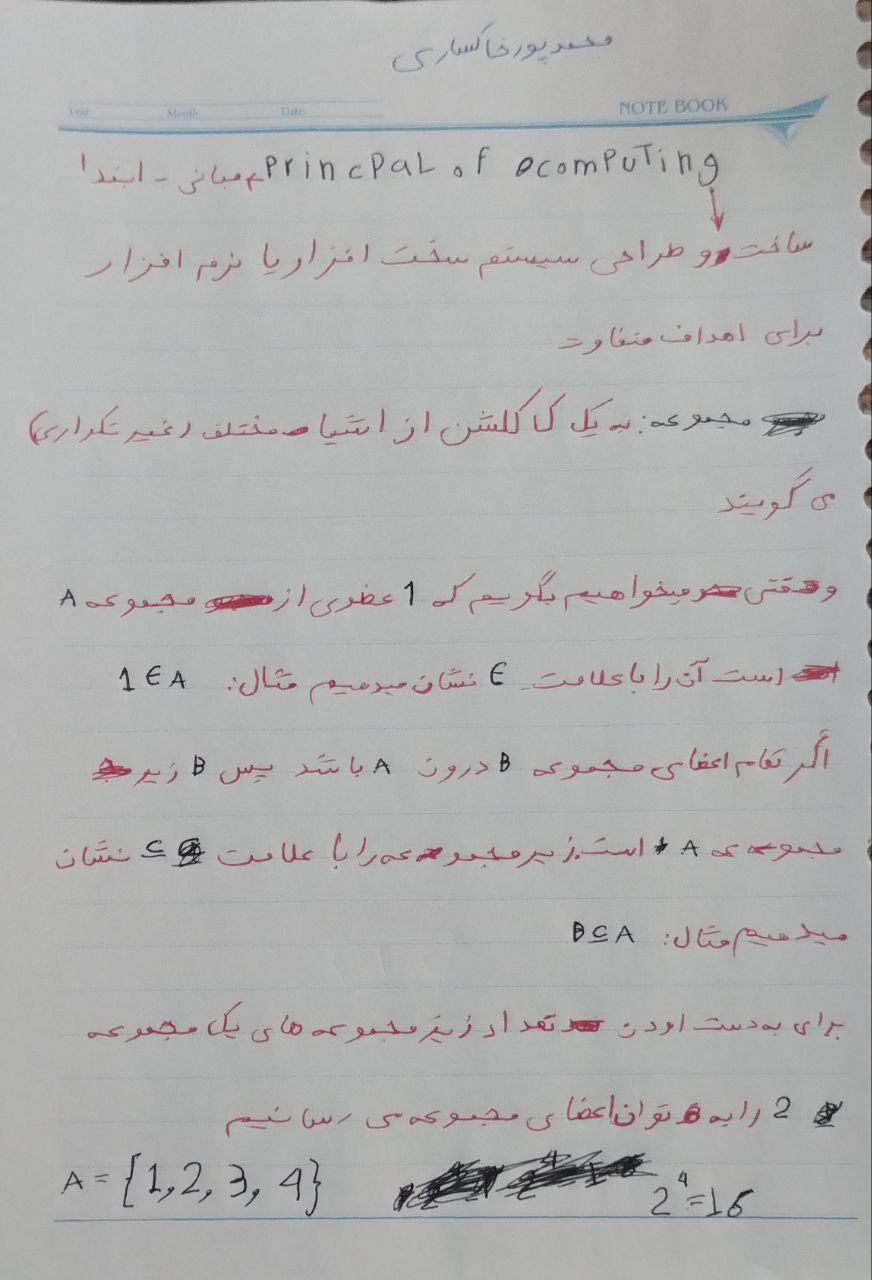 محمد پورخاکساری
Year Month Date NOTE BOOK
Princpal of computing مبانی - ابتدا
ساخت و طراحی سیستم سخت افزار یا نرم افزار
برای اهداف متفاوت
مجموعه: به یک کالکشن از اشیا مختلف (غیر تکراری)
می گویند
وقتی میخواهیم بگویم که 1 عضوی از مجموعه A
است آن را با علامت ∈ نشان میدهیم مثال: 1 ∈ A
اگر تمام اعضای مجموعه B درون A باشد پس B زیر
مجموعه A است. زیر مجموعه را با علامت ⊆ نشان
میدهیم مثال: B ⊆ A
برای به دست اودن تعداد زیر مجموعه های یک مجموعه
2 را به توان اعضای مجموعه می رسانیم
A = {1, 2, 3, 4} 2⁴ = 16